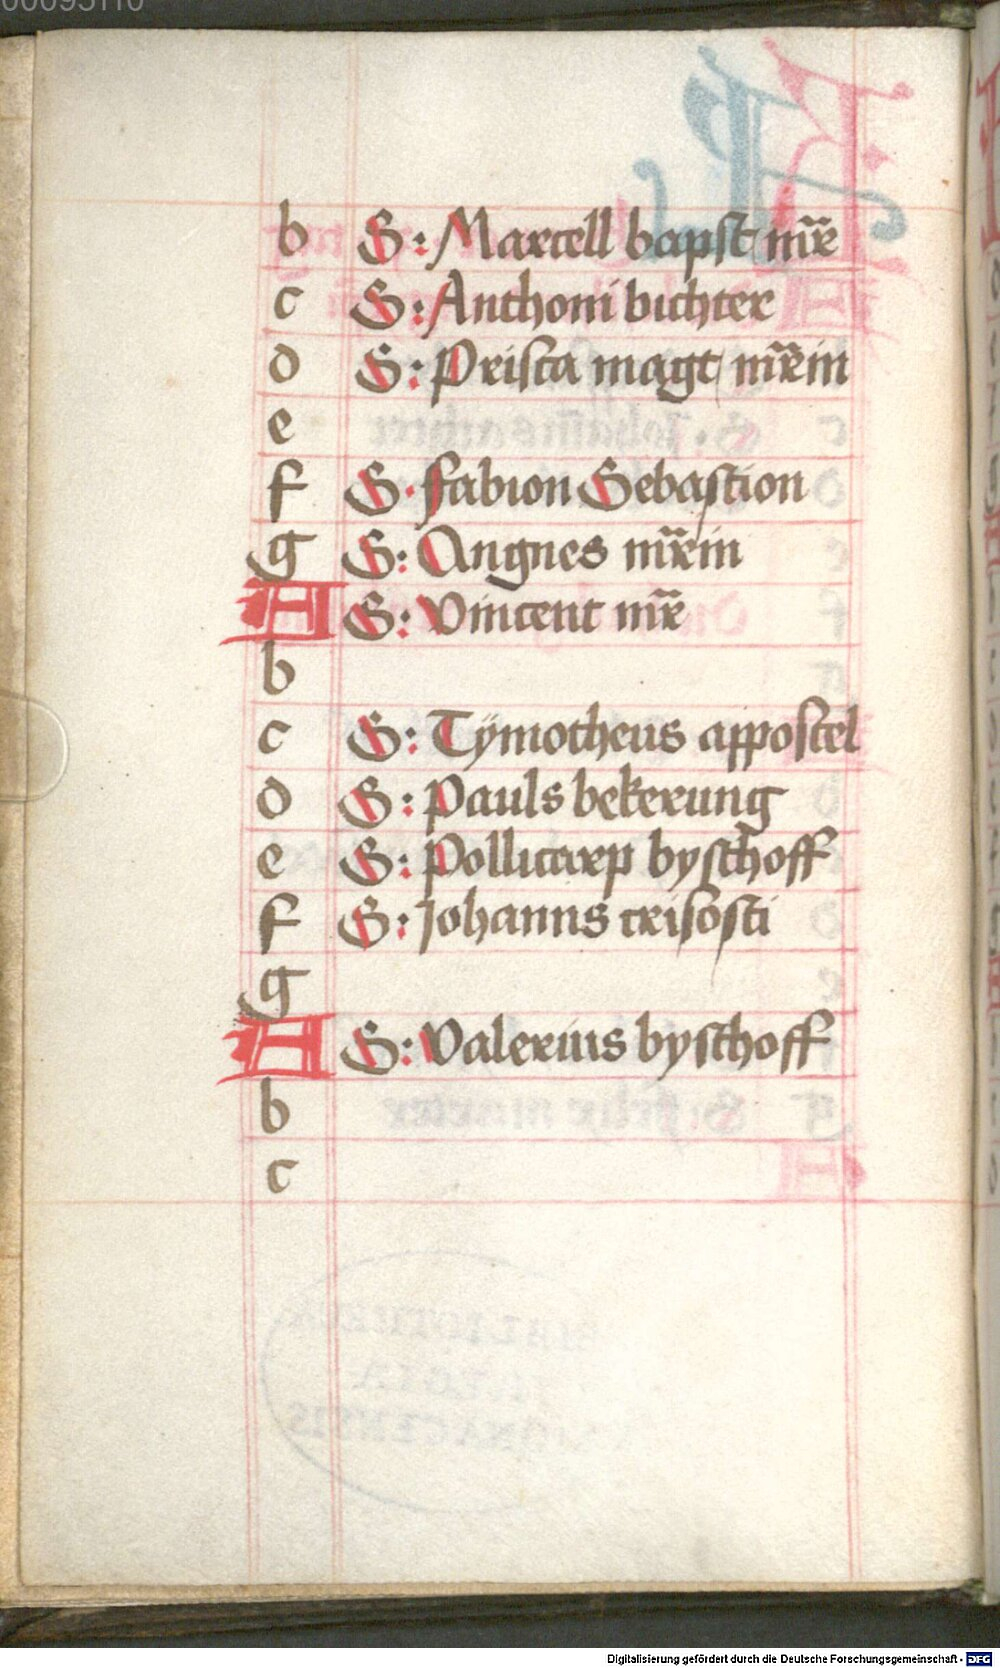 00095110
b S: Marcell bapst mr̄
c S: Anthoni bichter
d S: Prisca magt mr̄in
e
f S. fabion Sebastion
g S: Angnes mr̄in
A S: Vincent mr̄
b
c S: Tÿmotheus appostel
d S: Pauls bekerung
e S: Pollicarp byschoff
f S: Johanns crisosti
g
A S: Valerius byschoff
b
c
Digitalisierung gefördert durch die Deutsche Forschungsgemeinschaft - DFG